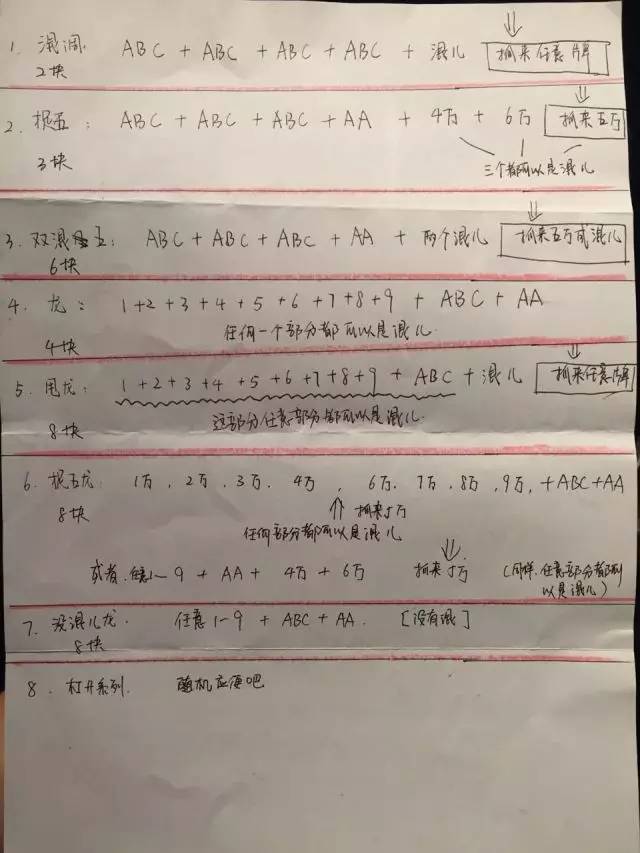 1. 混调 ABC + ABC + ABC + ABC + 混儿 抓来任意牌
2块
2. 捉五: ABC + ABC + ABC + AA + 4万 + 6万 抓来五万
3块 三个都可以是混儿
3. 双混五: ABC + ABC + ABC + AA + 两个混儿 抓来五万或混儿
6块
4. 龙: 1+2+3+4+5+6+7+8+9 + ABC + AA
任何一个部分都可以是混儿
4块
5. 甩龙: 1+2+3+4+5+6+7+8+9 + ABC + 混儿 抓来任意牌
这部分任意部分都可以是混儿
8块
6. 捉五龙: 1万、2万、3万、4万, 6万、7万、8万、9万, +ABC+AA
8块 抓来5万
任何部分都可以是混儿
或者: 任意1-9 + AA + 4万 + 6万 抓来5万 (同样,任意部分都可
以是混儿)
7. 没混儿龙. 任意1-9 + ABC + AA. [没有混]
8块
8. 杠开系列. 随机应变吧